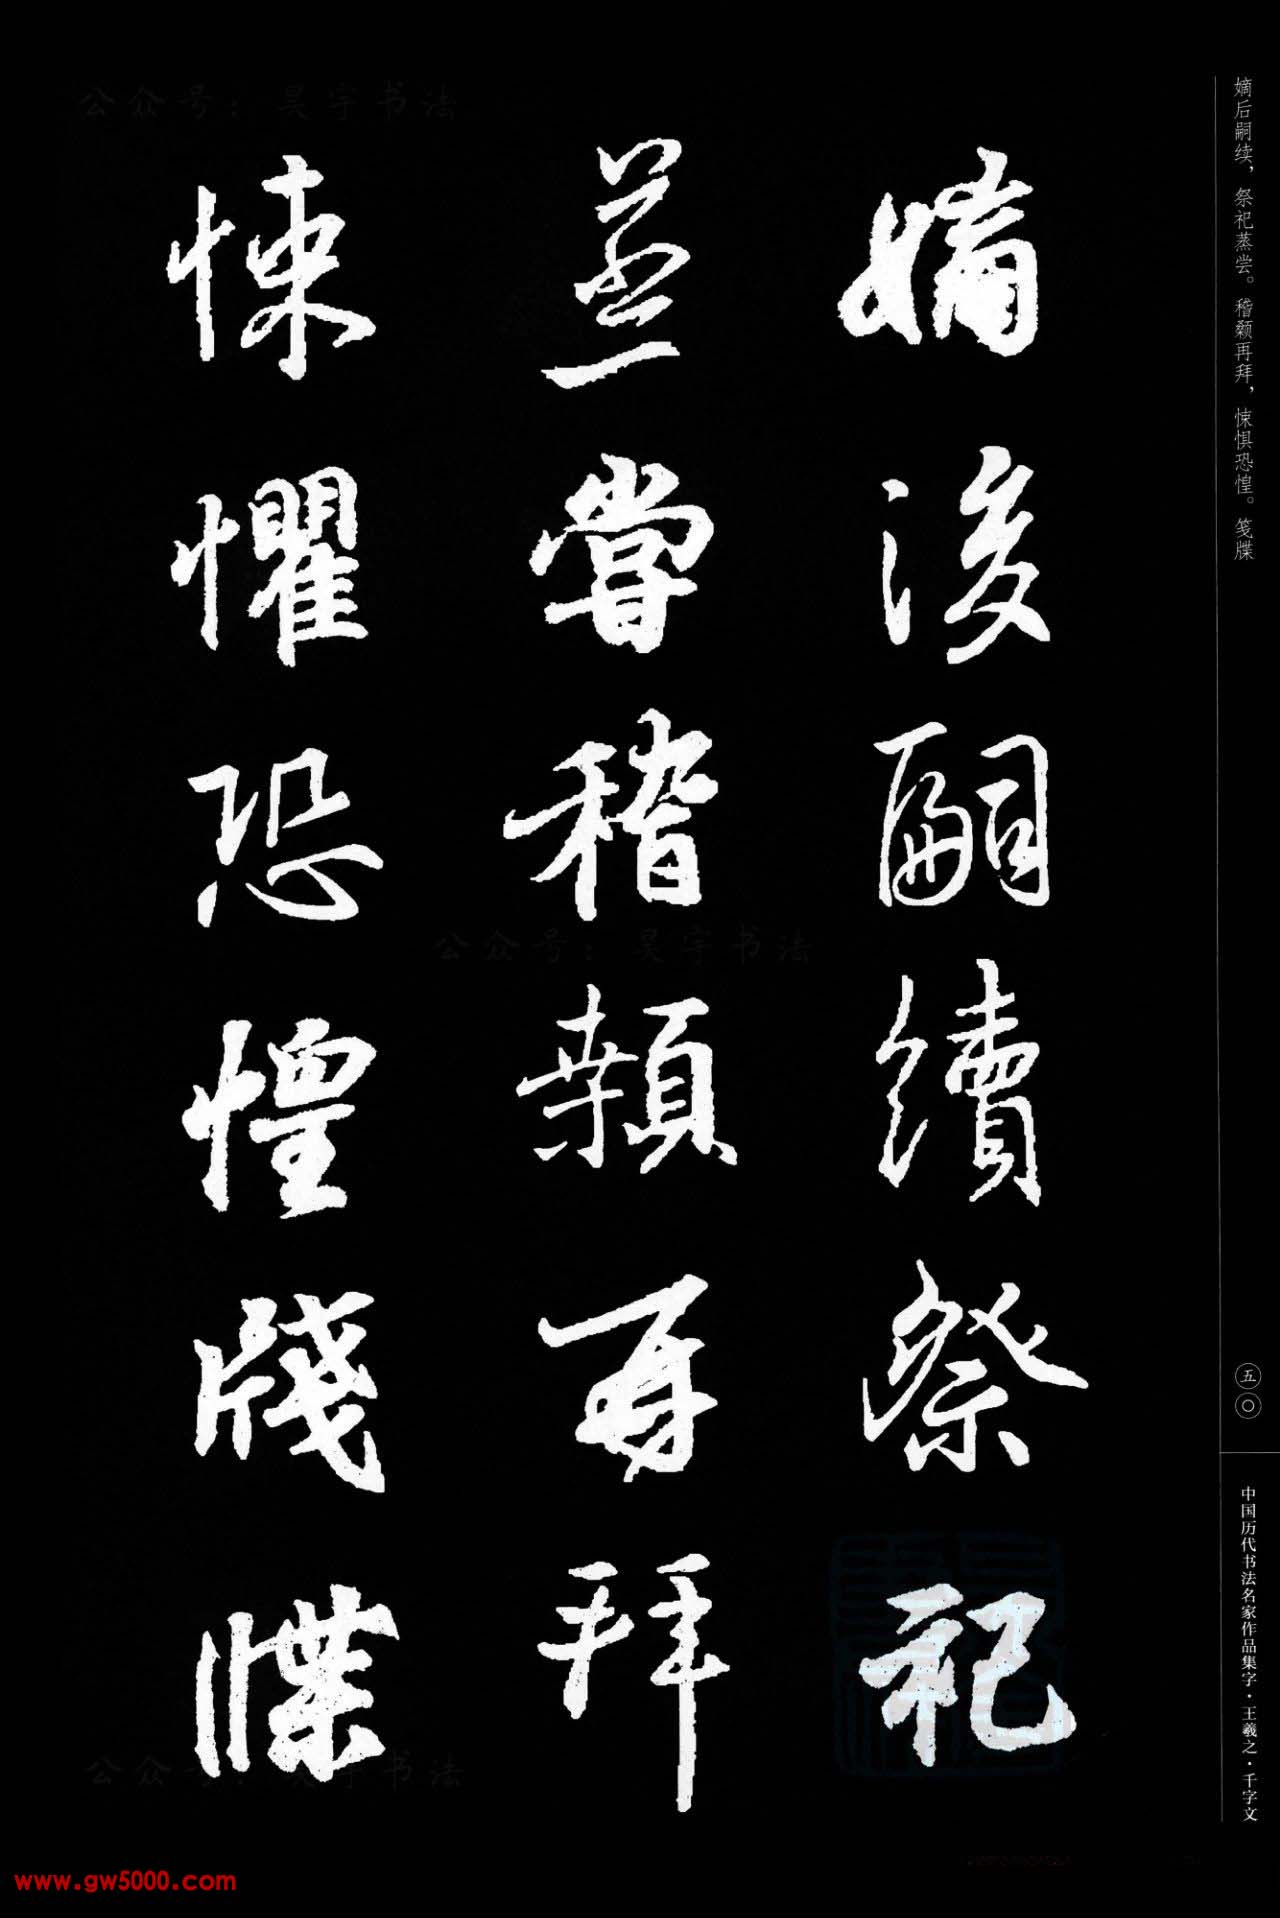 嫡後嗣續祭祀
蒸嘗稽顙再拜
悚懼恐惶牋牒
嫡后嗣续，祭祀蒸尝。稽颡再拜，悚惧恐惶。笺牒
五〇
中国历代书法名家作品集字·王羲之·千字文
公众号：昊宇书法
公众号：昊宇书法
公众号：昊宇书法
www.gw5000.com